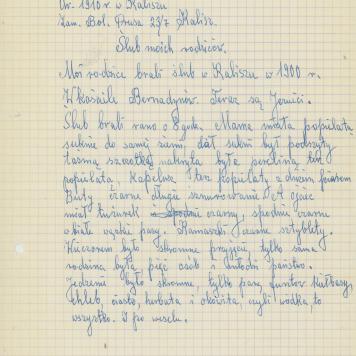 Ur. 1910 r. w Kaliszu
Zam. Bol. Prusa 23/7 Kalisz.
Ślub moich rodziców.
Moi rodzice brali ślub w Kaliszu w 1900 r.
W kościele Bernadynów. Teraz są Jezuici.
Ślub brali rano o 8 godz. Mama miała popielatą
suknię do samej ziemi, dół sukni był podszyty
taśmą szczotką nakryta była peleryną też
popielatą, kapelusz też popielaty z dużym piórem
Buty czarne długie sznurowane. A Ojciec
miał tużurek czarny, spodnie czarne
w białe wąskie pasy. Kamaszki czarne sztyblety.
Wieczorem było skromne przyjęcie, tylko sama
rodzina była pięć osób i młodzi państwo.
Jedzenie było skromne, tylko parę funtów kiełbasy,
chleb, ciasto, herbata i okowita, czyli wódka, to
wszystko. I po weselu.